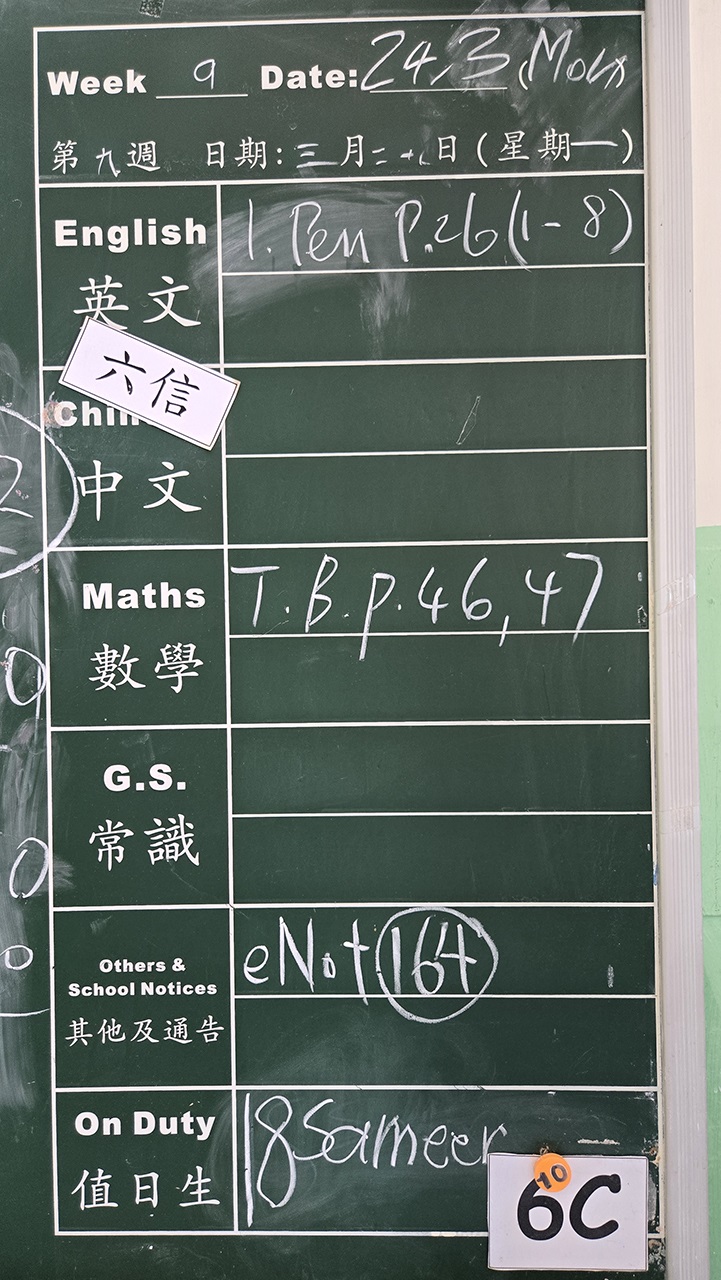 Week 9 Date: 24/3 (Mon)
第九週 日期: 三月二十四日 (星期一)
English
1. Pen P.26 (1-8)
英文
六信
Chin
中文
Maths
T.B.p.46,47
數學
G.S.
常識
Others &
School Notices
eNot 164
其他及通告
On Duty
18 Sameer
值日生
10
6C